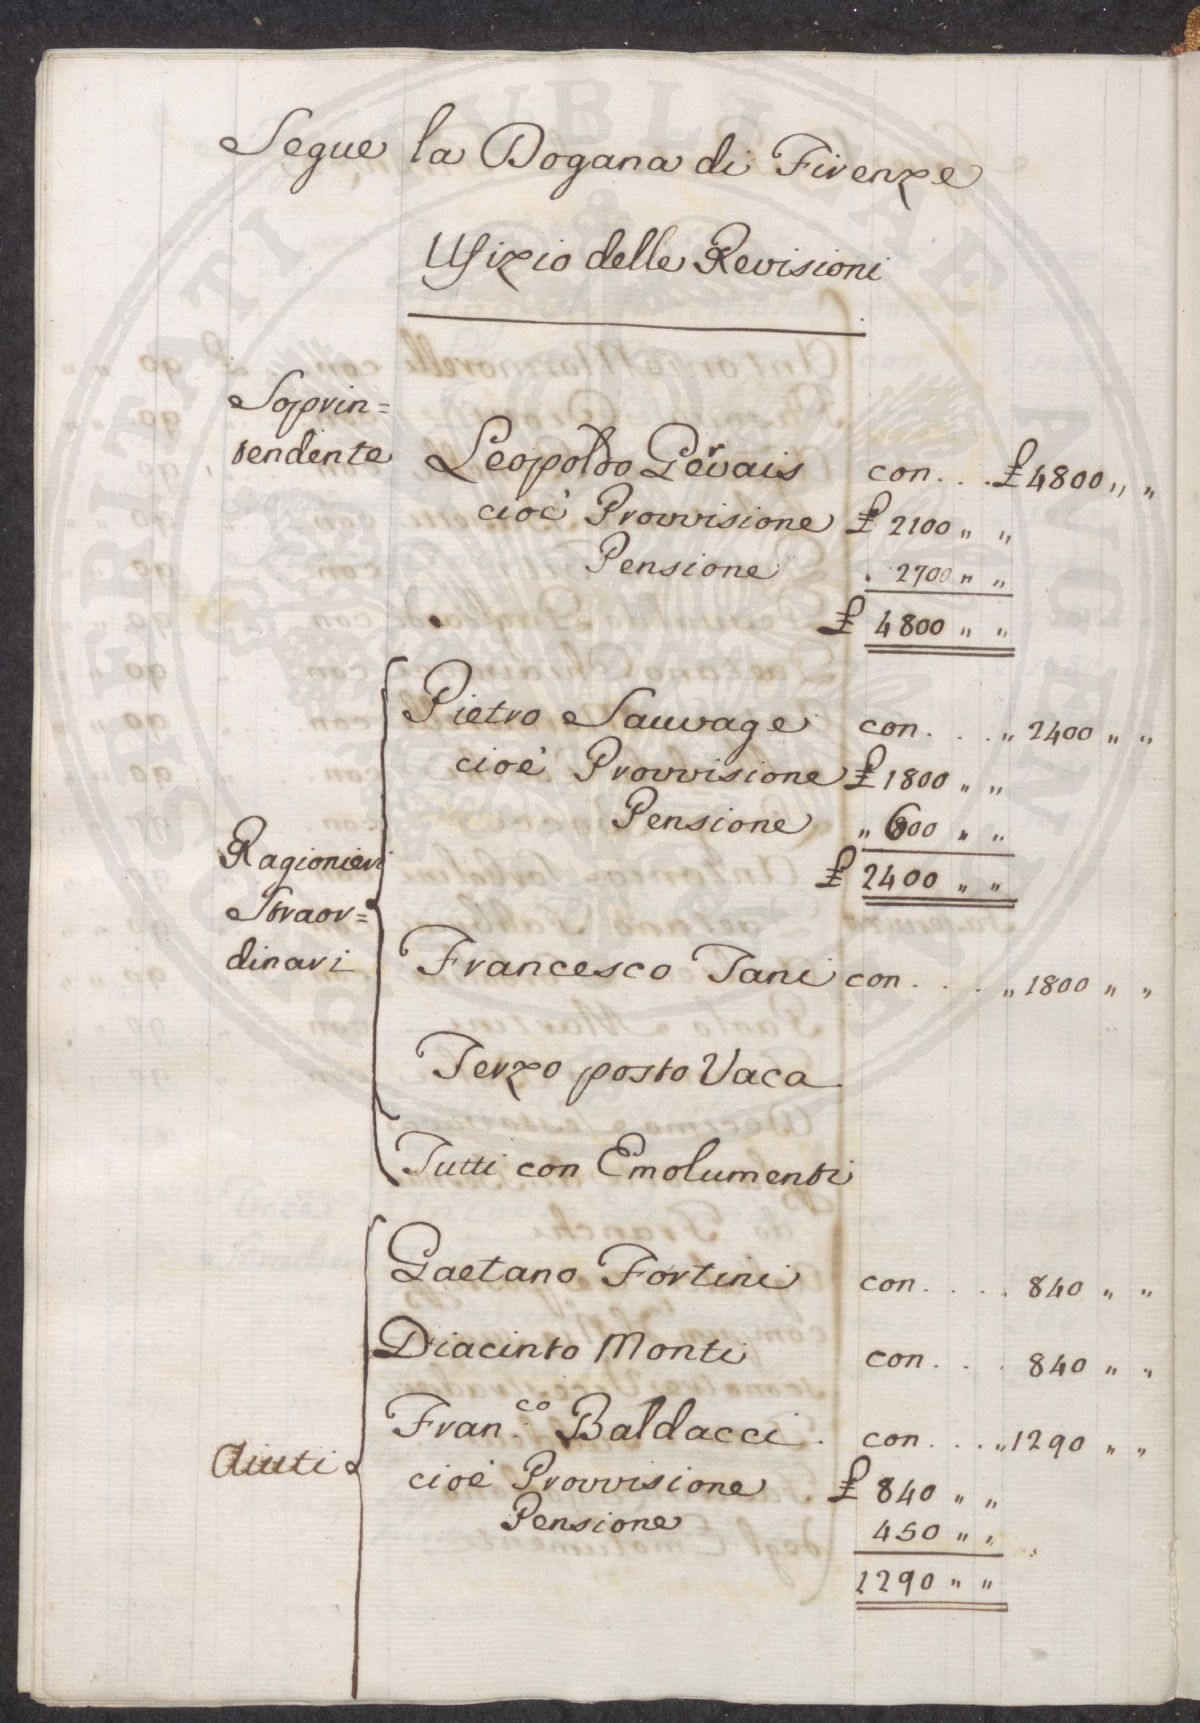 Segue la Dogana di Firenze
Ufizio delle Revisioni
Soprin=
tendente Leopoldo Gervais con . . . £ 4800 „ „
cioè Provvisione £ 2100 „ „
Pensione . 2700 „ „
£ 4800 „ „
Pietro Sauvage con . . . „ 2400 „ „
cioè Provvisione £ 1800 „ „
Pensione „ 600 „ „
£ 2400 „ „
Ragionieri
Straor=
dinari
Francesco Tani con . . . „ 1800 „ „
Terzo posto Vaca
Tutti con Emolumenti
Gaetano Fortini con . . . . 840 „ „
Diacinto Monti con . . . 840 „ „
Fran.co Baldacci . con . . . „ 1290 „ „
Aiuti
cioè Provvisione . £ 840 „ „
Pensione 450 „ „
1290 „ „